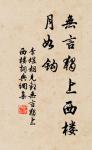 無言獨上西樓
月如鉤
李煜相見歡無言獨上
西樓詞典詞集